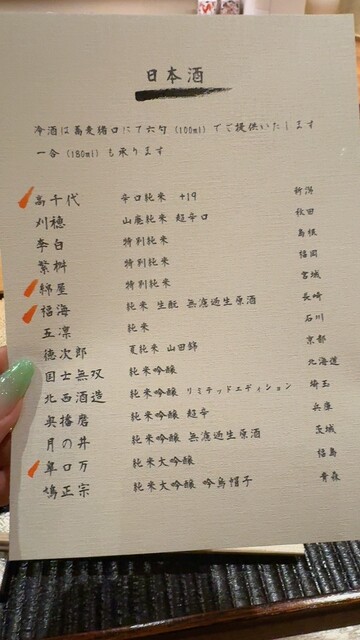 日本酒
冷酒は蕎麦猪口にて六勺(100ml)でご提供いたします
一合(180ml)も承ります
高千代 辛口純米 +19 新潟
刈穂 山廃純米 超辛口 秋田
李白 特別純米 島根
繁桝 特別純米 福岡
綿屋 特別純米 宮城
福海 純米 生酛 無濾過生原酒 長崎
五凛 純米 石川
徳次郎 夏純米 山田錦 京都
国士無双 純米吟醸 北海道
北西酒造 純米吟醸 リミテッドエディション 埼玉
奥播磨 純米吟醸 超辛 兵庫
月の井 純米吟醸 無濾過生原酒 茨城
皐ロ万 純米大吟醸 福島
鳩正宗 純米大吟醸 吟烏帽子 青森